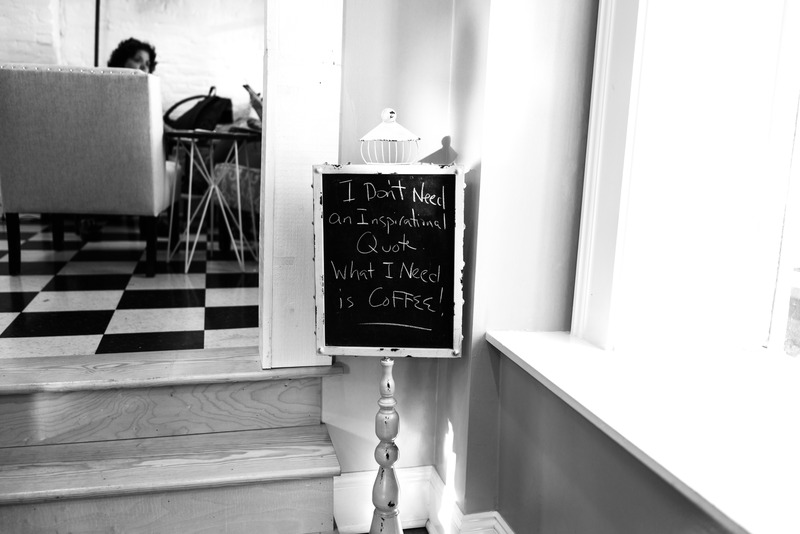 I Don't Need
an Inspirational
Quote.
What I Need
is COFFEE!